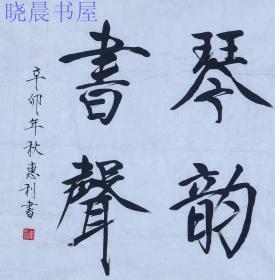 晓晨书屋
琴韵
書聲
辛卯年秋惠利書